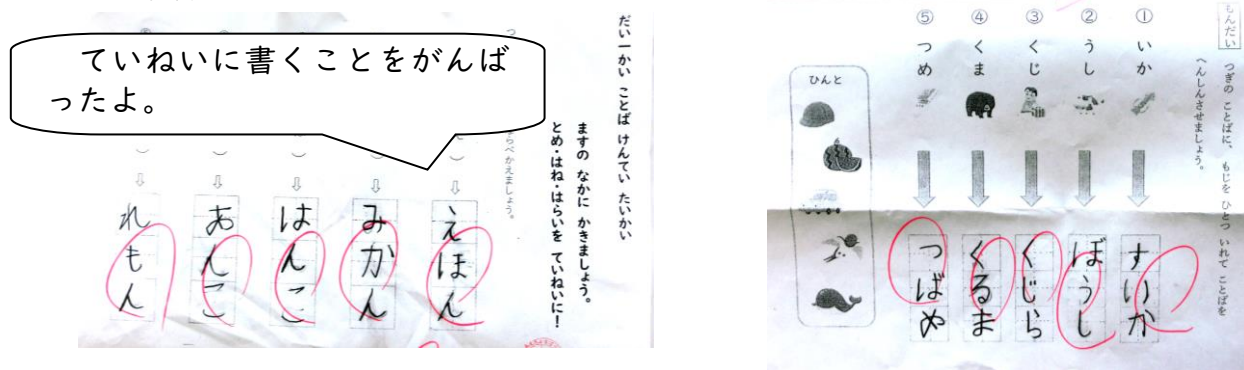 ていねいに書くことをがんば
ったよ。
だい一かい ことば けんてい たいかい
ますの なかに かきましょう。
とめ・はね・はらいを ていねいに！
べかえましょう。
えほん
みかん
はんこ
あんこ
れもん
もんだい つぎの ことばに、 もじを ひとつ いれて ことばを
へんしんさせましょう。
① いか
すいか
② うし
ぼうし
③ くじ
くじら
④ くま
くるま
⑤ つめ
つばめ
ひんと